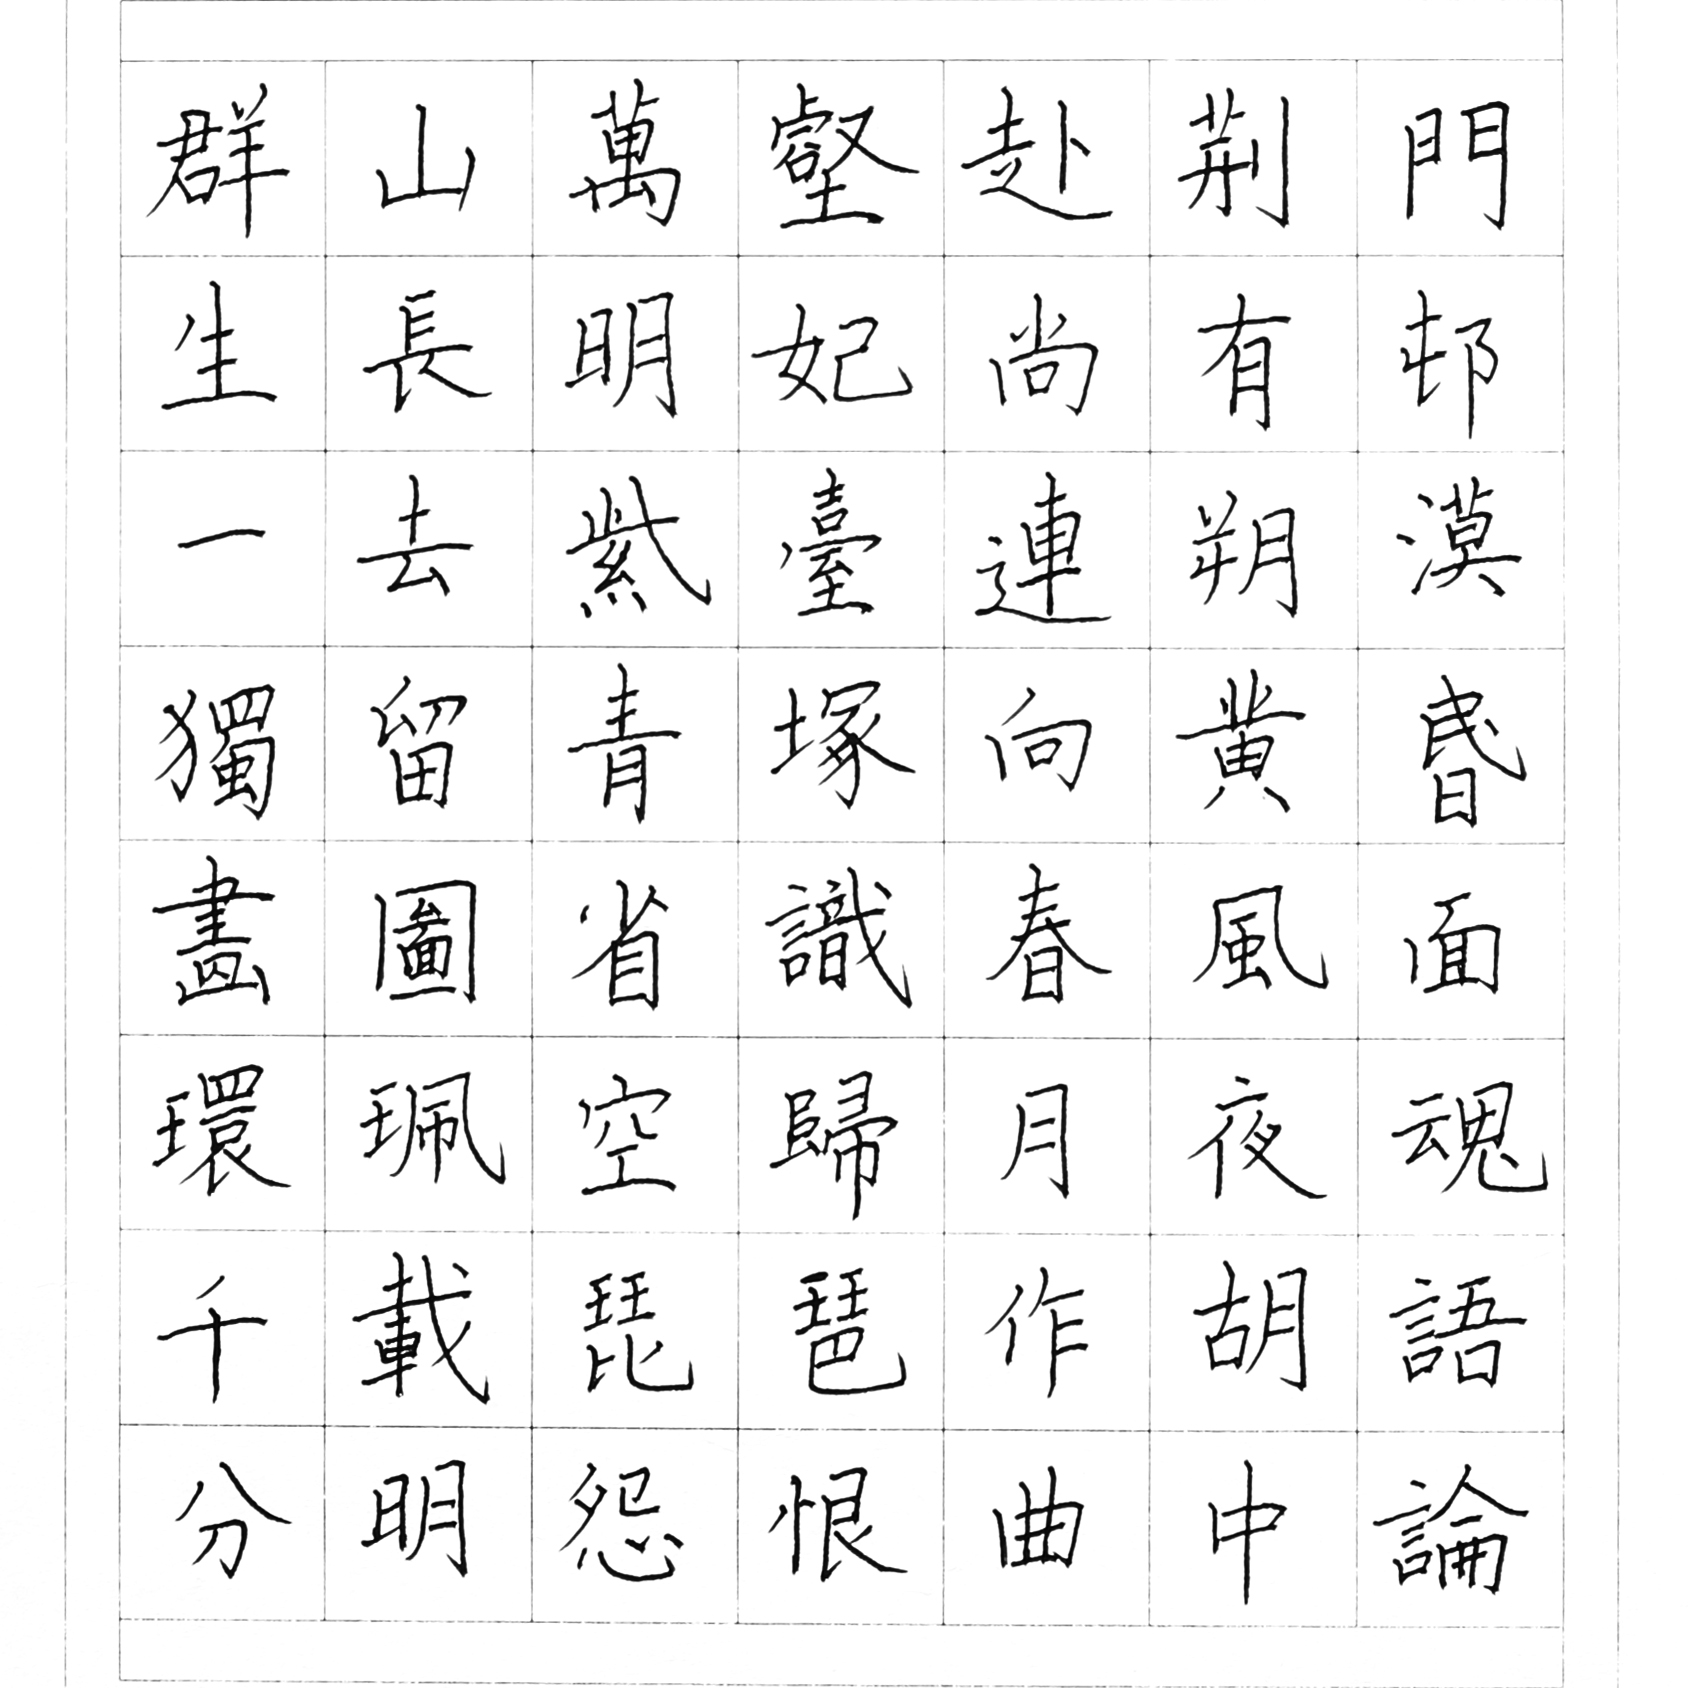 群山萬壑赴荊門
生長明妃尚有邨
一去紫臺連朔漠
獨留青塚向黃昏
畫圖省識春風面
環珮空歸月夜魂
千載琵琶作胡語
分明怨恨曲中論